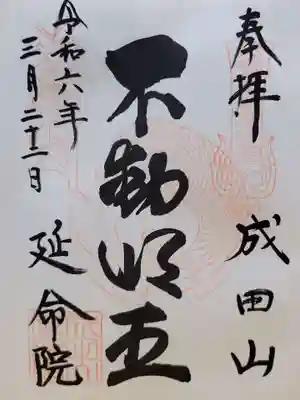 奉拝
成田山
不動明王
令和六年
三月二十二日
延命院